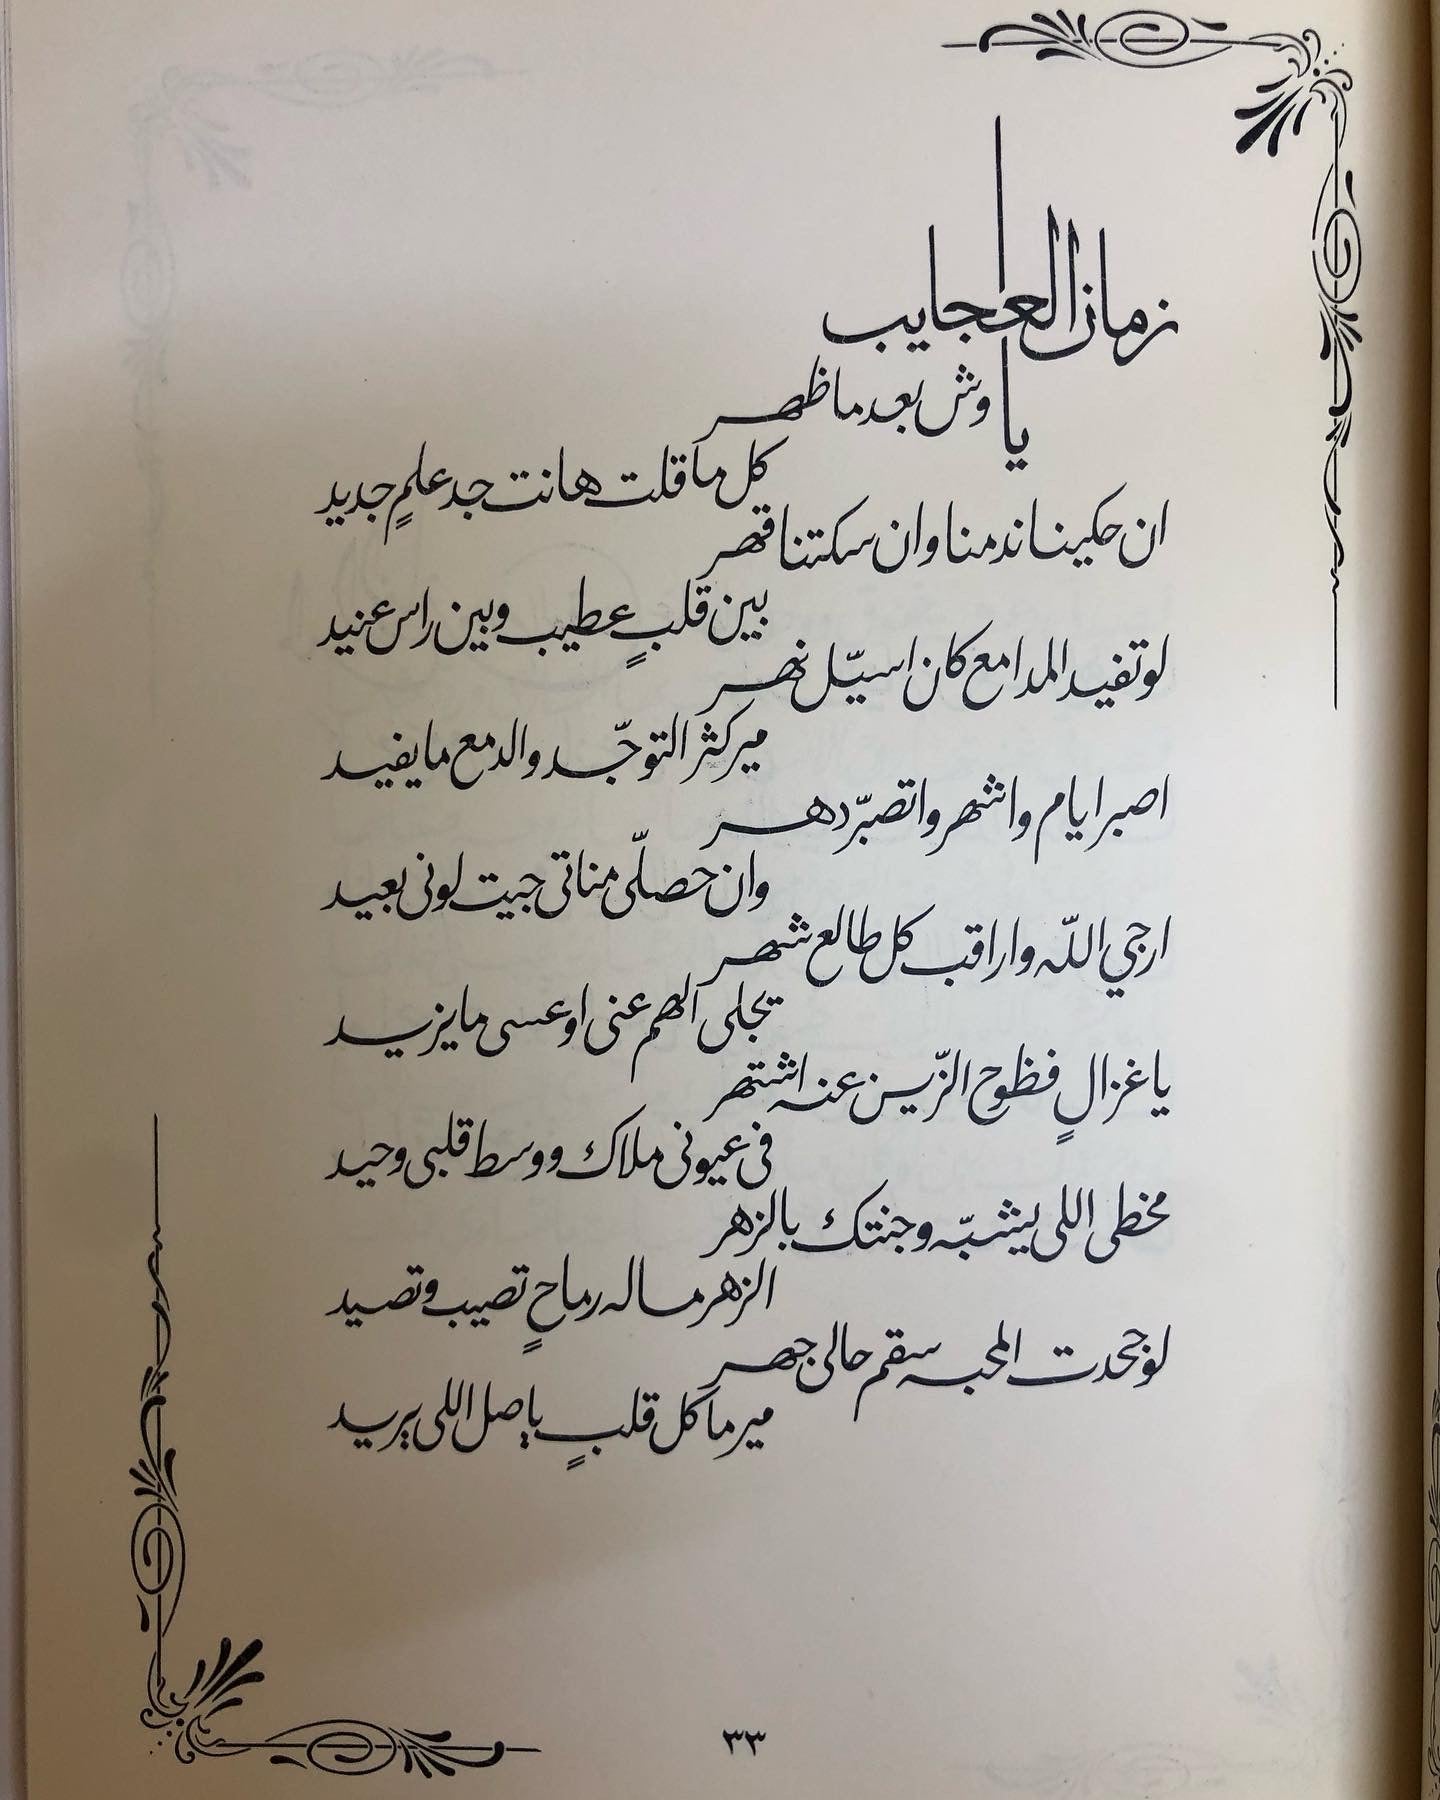 يا زمان العجايب
وش بعد ما ظهر
كل ما قلت هانت جد علمٍ جديد
ان حكينا ندمنا وان سكتنا قهر
بين قلبٍ عطيب وبين راس عنيد
لو تفيد المدامع كان اسيّل نهر
مير كثر التوجّد والدمع ما يفيد
اصبر ايام واشهر واتصبّر دهر
وان حصلّي مناتي جيت لوني بعيد
ارجي اللّه واراقب كل طالع شهر
يجلى الهم عني او عسى ما يزيد
يا غزالٍ فظوح الزّين عنه اشتهر
في عيوني ملاك ووسط قلبي وحيد
مخطي اللي يشبّه وجنتك بالزهر
الزهر ماله رماحٍ تصيب وتصيد
لو جحدت المحبه سقم حالي جهر
مير ما كل قلبٍ ياصل اللي يريد
٣٣